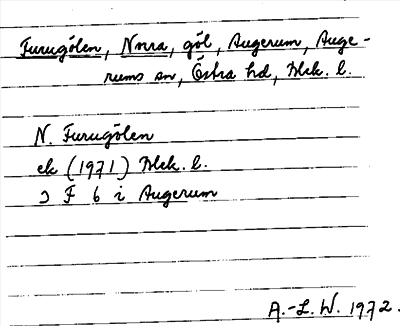 Furugölen, Norra, göl, Augerum, Auge-
rums sn, Östra hd, Blek. l.
N. Furugölen
ek (1971) Blek. l.
3 F 6 i Augerum
A.-L. W. 1972.